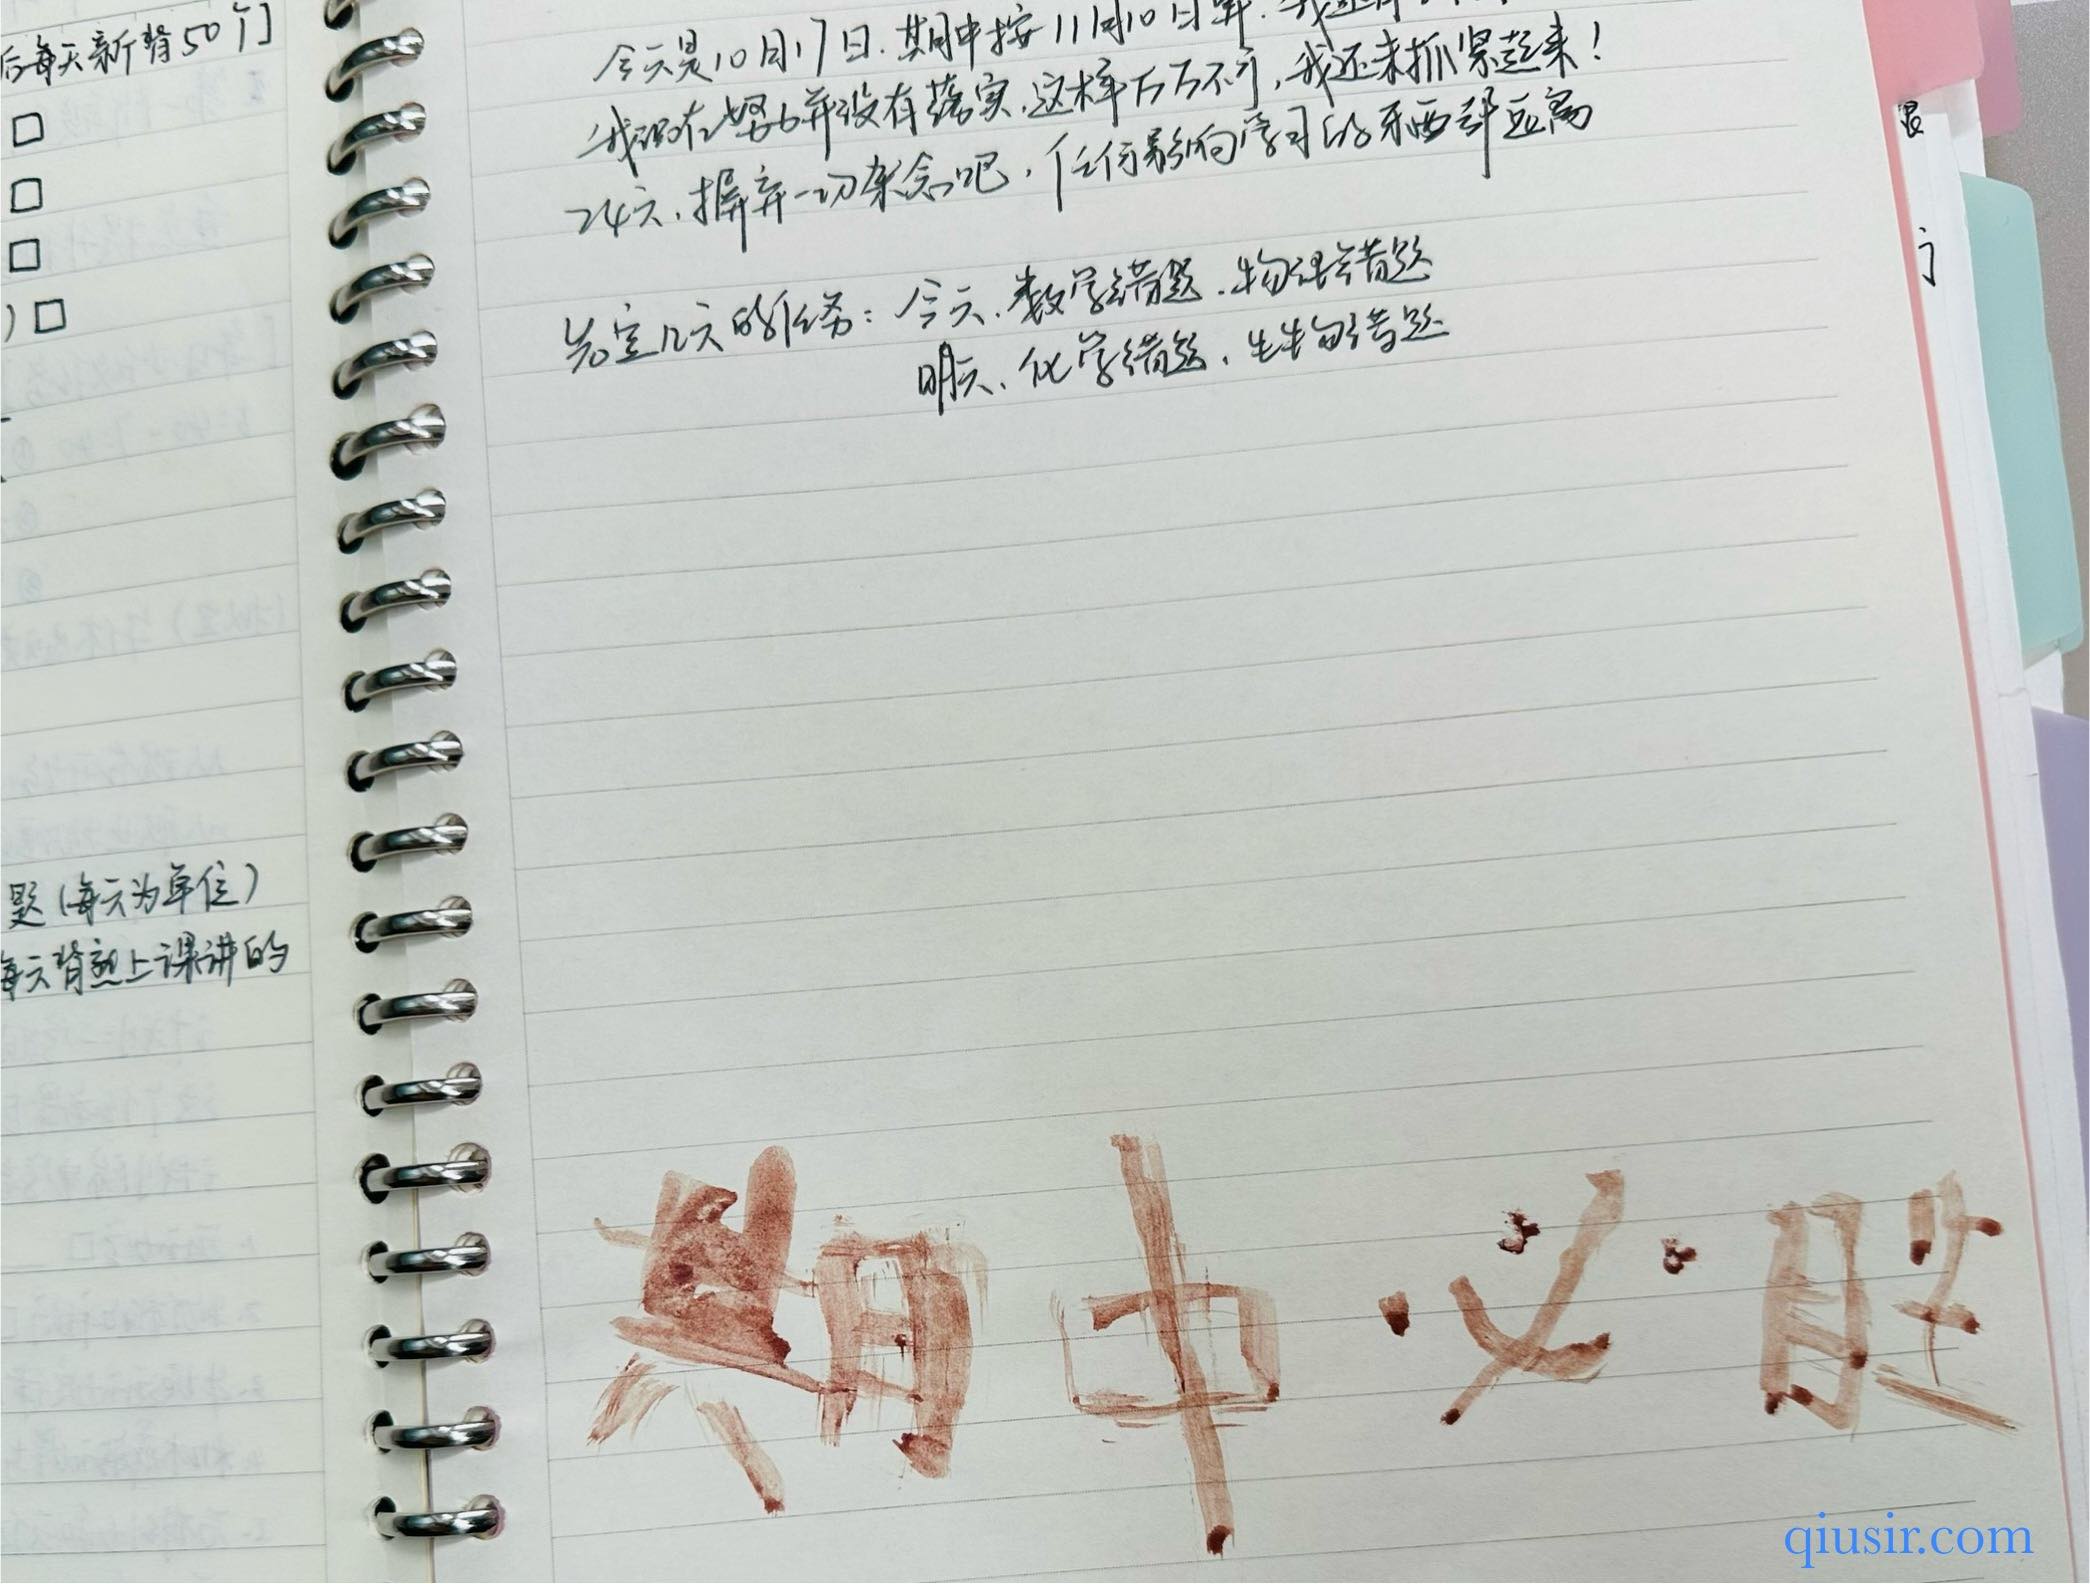 后每天新背50个]
□
□
□
) □
题(每天为单位)
每天背熟上课讲的
今天是10月17日.期中按11月10日算.我还有
我现在努力并没有落实.这样万万不可,我还未抓紧起来!
24天.摒弃一切杂念吧,任何影响学习的东西都远离
先定几天的任务:今天.数学错题.物理错题
明天、化学错题.生物错题
期中必胜
qiusir.com